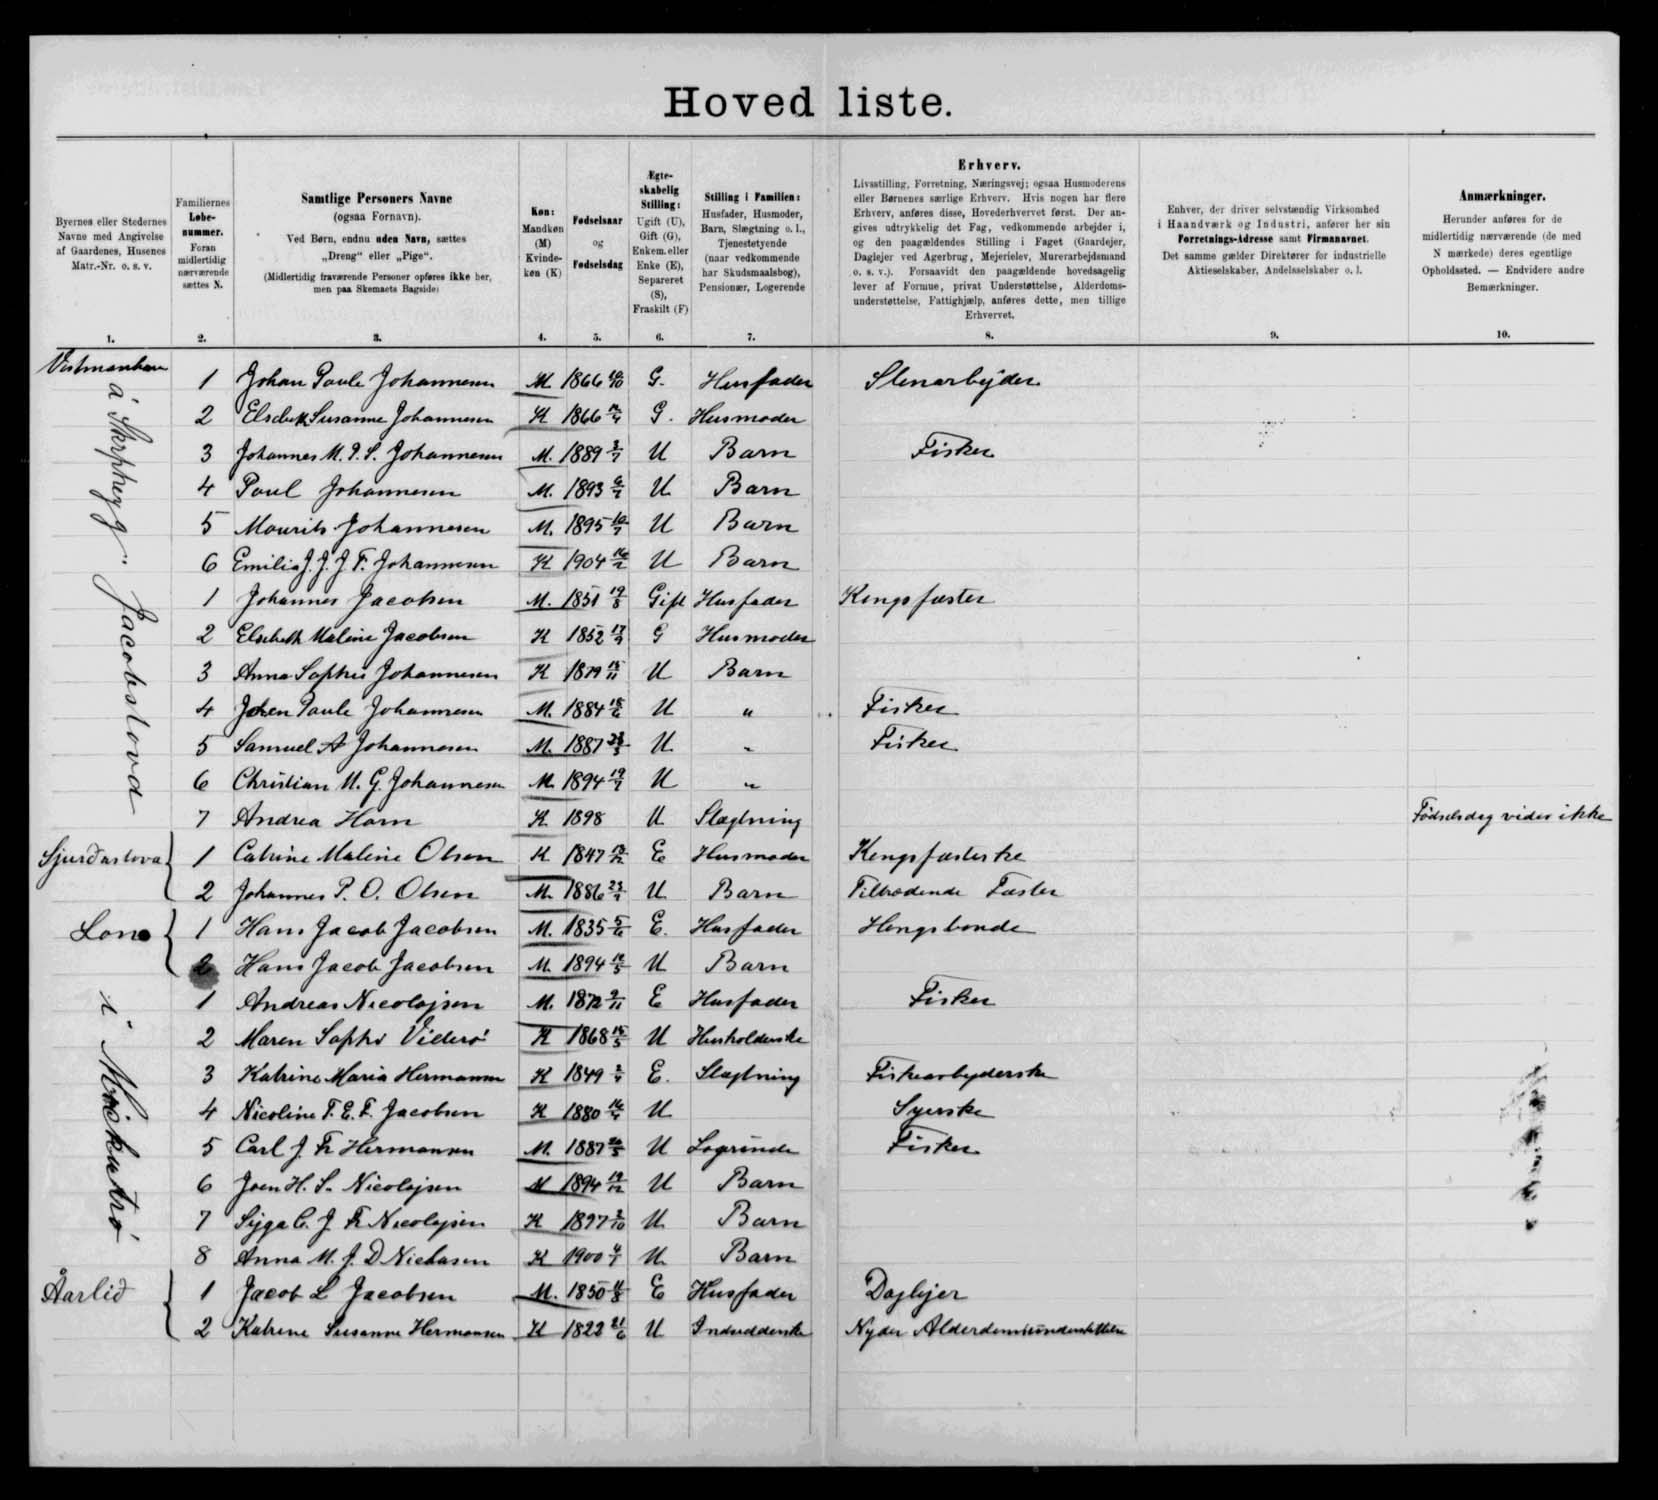 Hoved liste.
Byernes eller Stedernes
Navne med Angivelse
af Gaardenes, Husenes
Matr.-Nr. o. s. v.
1.
Familiernes
Løbe-
nummer.
Foran
midlertidig
nærværende
sættes N.
2.
Samtlige Personers Navne
(ogsaa Fornavn).
Ved Børn, endnu uden Navn, sættes
„Dreng“ eller „Pige“.
(Midlertidig fraværende Personer opføres ikke her,
men paa Skemaets Bagside)
3.
Køn:
Mandkøn
(M)
Kvinde-
køn (K)
4.
Fødselsaar
og
Fødselsdag
5.
Ægte-
skabelig
Stilling:
Ugift (U),
Gift (G),
Enkem. eller
Enke (E),
Separeret
(S),
Fraskilt (F)
6.
Stilling i Familien:
Husfader, Husmoder,
Barn, Slægtning o. l.,
Tjenestetyende
(naar vedkommende
har Skudsmaalsbog),
Pensionær, Logerende
7.
Erhverv.
Livsstilling, Forretning, Næringsvej; ogsaa Husmoderens
eller Børnenes særlige Erhverv. Hvis nogen har flere
Erhverv, anføres disse, Hovederhvervet først. Der an-
gives udtrykkelig det Fag, vedkommende arbejder i,
og den paagældendes Stilling i Faget (Gaardejer,
Daglejer ved Agerbrug, Mejerielev, Murerarbejdsmand
o. s. v.). Forsaavidt den paagældende hovedsagelig
lever af Formue, privat Understøttelse, Alderdoms-
understøttelse, Fattighjælp, anføres dette, men tillige
Erhvervet.
8.
Enhver, der driver selvstændig Virksomhed
i Haandværk og Industri, anfører her sin
Forretnings-Adresse samt Firmanavnet.
Det samme gælder Direktører for industrielle
Aktieselskaber, Andelsselskaber o. l.
9.
Anmærkninger.
Herunder anføres for de
midlertidig nærværende (de med
N mærkede) deres egentlige
Opholdssted. — Endvidere andre
Bemærkninger.
10.
1 Johan Poule Johannesen M 1866 G. Husfader Stenarbejder
2 Elsebeth Susanne Johannesen K 1866 G. Husmoder
3 Johannes M. P. S. Johannesen M. 1889 3/7 U Barn Fisker
4 Poul Johannesen M. 1893 U Barn
5 Mourits Johannesen M. 1895 10/7 U Barn
6 Emilia J. J. J. F. Johannesen K 1904 U Barn
Jacobstova
1 Johannes Jacobsen M. 1851 19/8 Gift Husfader Kongsfæster
2 Elsebeth Malene Jacobsen K 1852 G Husmoder
3 Anna Sophie Johannesen K 1879 15/11 U Barn
4 Joen Poule Johannesen M. 1884 18/6 U " Fisker
5 Samuel A Johannesen M. 1887 U " Fisker
6 Christian M. G. Johannesen M. 1894 U "
7 Andrea Horn K 1898 U Slægtning Fødselsdag vides ikke
Sjurðastova 1 Catrine Malene Olsen K 1847 E Husmoder Kongsfæsterske
2 Johannes P. O. Olsen M. 1886 U Barn Tiltrædende Fæster
Lon 1 Hans Jacob Jacobsen M. 1835 5/6 E. Husfader Kongsbonde
2 Hans Jacob Jacobsen M. 1894 U Barn
1 Andreas Nicolajsen M. 1872 9/11 E Husfader Fisker
2 Maren Sophi Viderø K 1868 15/5 U Husholderske
3 Katrine Maria Hermansen K 1849 E. Slægtning Fiskearbejderske
4 Nicoline F. E. F. Jacobsen K 1880 U Syerske
5 Carl J. Fr Hermansen M. 1887 U Logerende Fisker
6 Joen H. S. Nicolajsen M 1894 19/12 U Barn
7 Sigga C. J. Fr Nicolajsen K 1897 3/10 U Barn
8 Anna M. J. D Niclasen K 1900 U Barn
Áarlið 1 Jacob L Jacobsen M. 1850 11/8 E Husfader Daglejer
2 Katrine Susanne Hermansen K 1822 21/6 U Indsidderske Nyder Alderdomsunderstøttelse